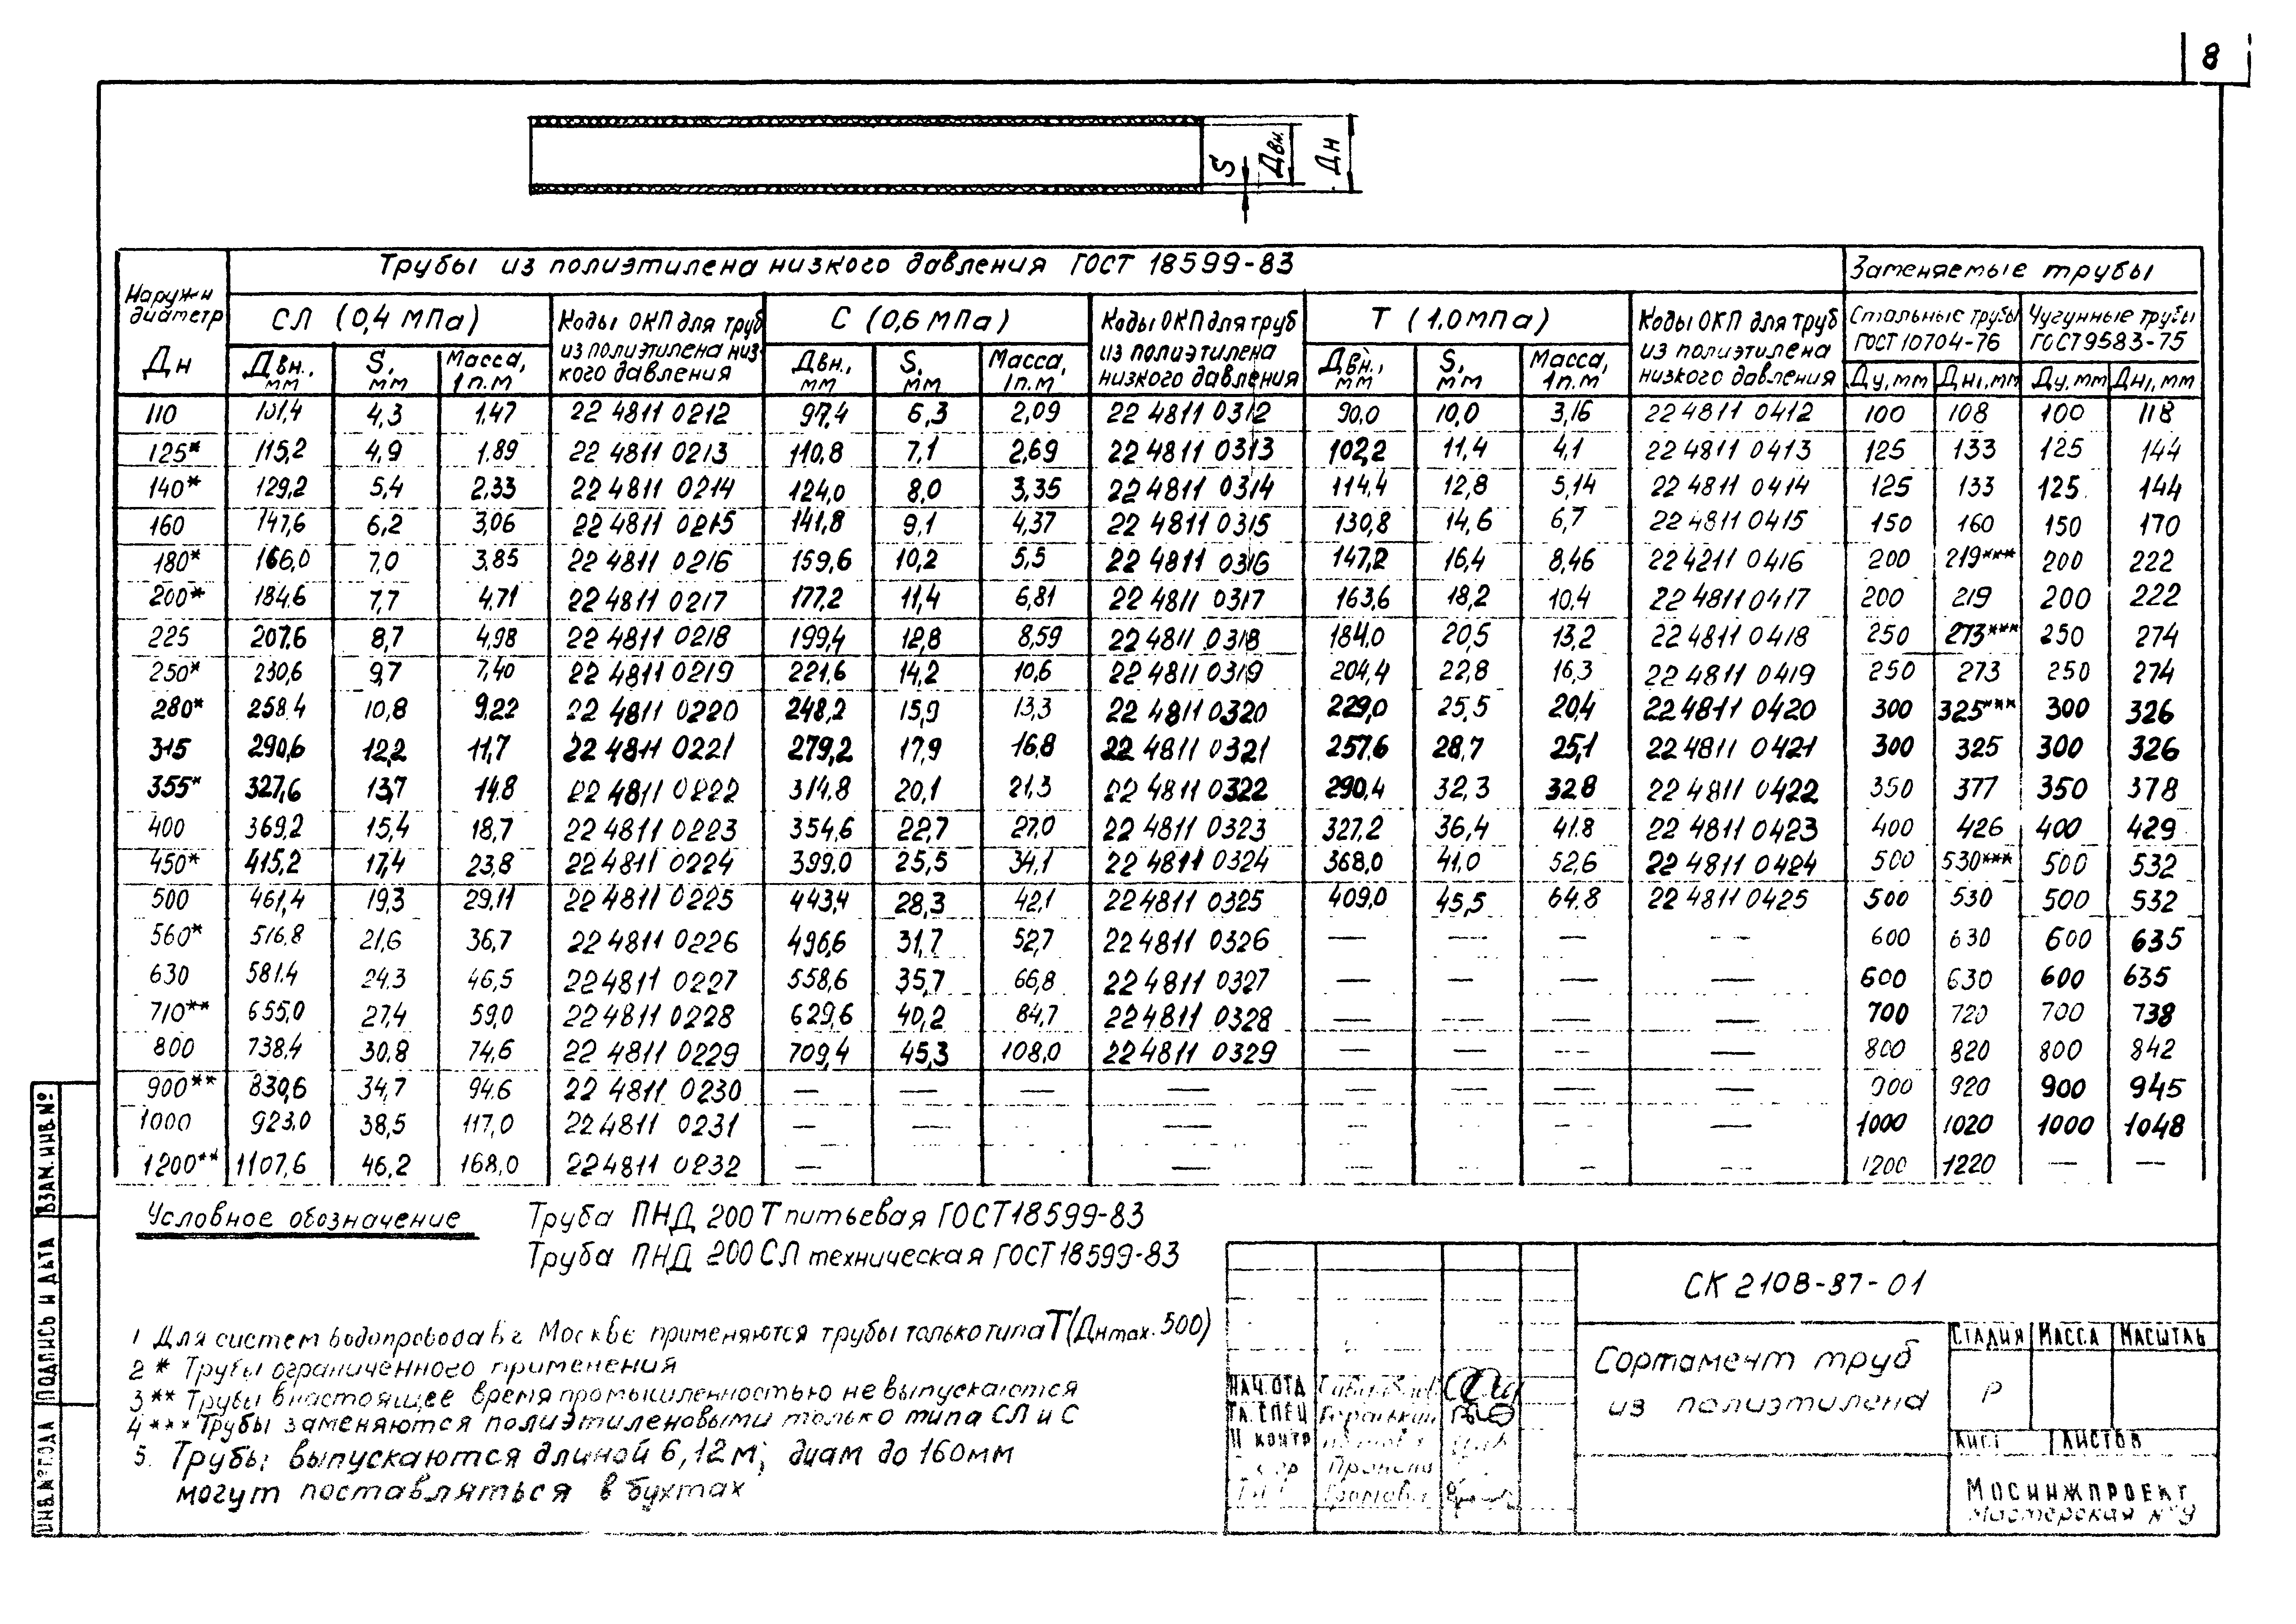 8
S
Двн.
Дн
Наружн диаметр Дн
Трубы из полиэтилена низкого давления ГОСТ 18599-83
Заменяемые трубы
СЛ (0,4 МПа)
Коды ОКП для труб из полиэтилена низкого давления
С (0,6 МПа)
Коды ОКП для труб из полиэтилена низкого давления
Т (1.0 мПа)
Коды ОКП для труб из полиэтилена низкого давления
Стальные трубы ГОСТ 10704-76
Чугунные трубы ГОСТ 9583-75
Двн., мм S, мм Масса, 1п.м Двн., мм S, мм Масса, 1п.м Двн., мм S, мм Масса, 1п.м Ду, мм Дн1, мм Ду, мм Дн1, мм
110 101,4 4,3 1,47 22 4811 0212 97,4 6,3 2,09 22 4811 0312 90,0 10,0 3,16 22 4811 0412 100 108 100 118
125* 115,2 4,9 1.89 22 4811 0213 110,8 7,1 2,69 22 4811 0313 102,2 11,4 4,1 22 4811 0413 125 133 125 144
140* 129,2 5,4 2,33 22 4811 0214 124,0 8,0 3,35 22 4811 0314 114,4 12,8 5,14 22 4811 0414 125 133 125 144
160 147,6 6,2 3,06 22 4811 0215 141,8 9,1 4,37 22 4811 0315 130,8 14,6 6,7 22 4811 0415 150 160 150 170
180* 166,0 7,0 3,85 22 4811 0216 159,6 10,2 5,5 22 4811 0316 147,2 16,4 8,46 22 4211 0416 200 219*** 200 222
200* 184,6 7,7 4,71 22 4811 0217 177,2 11,4 6,81 22 4811 0317 163,6 18,2 10,4 22 4811 0417 200 219 200 222
225 207,6 8,7 4,98 22 4811 0218 199,4 12,8 8,59 22 4811 0318 184,0 20,5 13,2 22 4811 0418 250 273*** 250 274
250* 230,6 9,7 7,40 22 4811 0219 221,6 14,2 10,6 22 4811 0319 204,4 22,8 16,3 22 4811 0419 250 273 250 274
280* 258.4 10,8 9,22 22 4811 0220 248,2 15,9 13,3 22 4811 0320 229,0 25,5 20,4 22 4811 0420 300 325*** 300 326
315 290,6 12,2 11,7 22 4811 0221 279,2 17,9 16,8 22 4811 0321 257,6 28,7 25,1 22 4811 0421 300 325 300 326
355* 327,6 13,7 14,8 22 4811 0222 314,8 20,1 21,3 22 4811 0322 290,4 32,3 32,8 22 4811 0422 350 377 350 378
400 369,2 15,4 18,7 22 4811 0223 354,6 22,7 27,0 22 4811 0323 327,2 36,4 41.8 22 4811 0423 400 426 400 429
450* 415,2 17,4 23,8 22 4811 0224 399,0 25,5 34,1 22 4811 0324 368,0 41,0 52,6 22 4811 0424 500 530*** 500 532
500 461,4 19,3 29,11 22 4811 0225 443,4 28,3 42,1 22 4811 0325 409,0 45,5 64,8 22 4811 0425 500 530 500 532
560* 516,8 21,6 36,7 22 4811 0226 496,6 31,7 52,7 22 4811 0326 — — — — 600 630 600 635
630 581.4 24,3 46,5 22 4811 0227 558,6 35,7 66,8 22 4811 0327 — — — — 600 630 600 635
710** 655,0 27,4 59,0 22 4811 0228 629,6 40,2 84,7 22 4811 0328 — — — — 700 720 700 738
800 738,4 30,8 74,6 22 4811 0229 709,4 45,3 108,0 22 4811 0329 — — — — 800 820 800 842
900** 830,6 34,7 94,6 22 4811 0230 — — — — — — — — 900 920 900 945
1000 923,0 38,5 117,0 22 4811 0231 — — — — — — — — 1000 1020 1000 1048
1200** 1107,6 46,2 168,0 22 4811 0232 — — — — — — — 1200 1220 — —
Условное обозначение Труба ПНД 200 Т питьевая ГОСТ 18599-83
Труба ПНД 200 СЛ техническая ГОСТ 18599-83
1 Для систем водопровода в г Москве применяются трубы только типа Т (Дн max. 500)
2 * Трубы ограниченного применения
3 ** Трубы в настоящее время промышленностью не выпускаются
4 *** Трубы заменяются полиэтиленовыми только типа СЛ и С
5. Трубы выпускаются длиной 6, 12 м; диам до 160мм
могут поставляться в бухтах
СК 2108-87-01
Сортамент труб
из полиэтилена
СТАДИЯ МАССА МАСШТАБ
Р
ЛИСТ ЛИСТОВ
МОСИНЖПРОЕКТ
Мастерская №9
НАЧ.ОТД
ГЛ.СПЕЦ
Н КОНТР
ИНВ.№ГОДА ПОДПИСЬ И ДАТА ВЗАМ.ИНВ.№